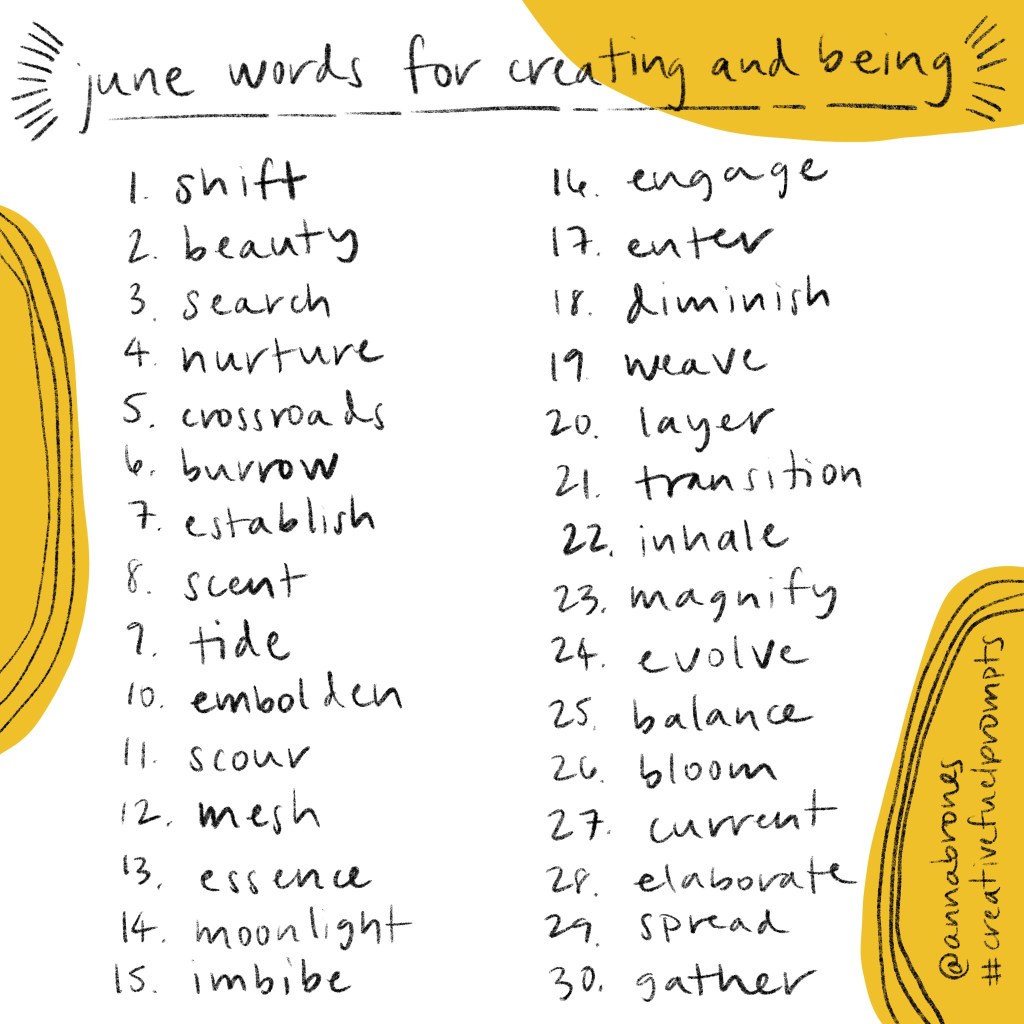 june words for creating and being
1. shift
2. beauty
3. search
4. nurture
5. crossroads
6. burrow
7. establish
8. scent
9. tide
10. embolden
11. scour
12. mesh
13. essence
14. moonlight
15. imbibe
16. engage
17. enter
18. diminish
19. weave
20. layer
21. transition
22. inhale
23. magnify
24. evolve
25. balance
26. bloom
27. current
28. elaborate
29. spread
30. gather
@annabrones
#creativefuelprompts